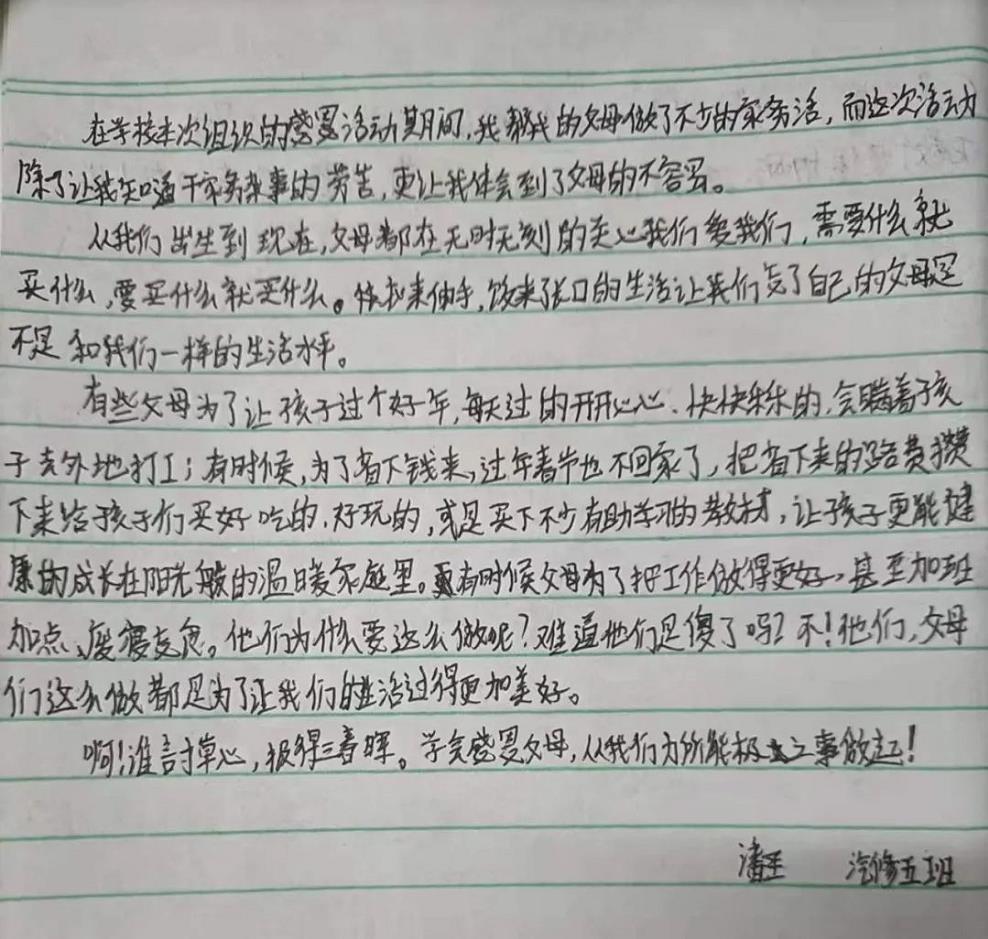 在学校本次组织的感恩活动期间，我帮我的父母做了不少的家务活，而这次活动
除了让我知道干家务杂事的劳苦，更让我体会到了父母的不容易。
从我们出生到现在，父母都在无时无刻的关心我们爱我们，需要什么就
买什么，要买什么就买什么。衣来伸手，饭来张口的生活让我们忘了自己的父母是
不是和我们一样的生活水平。
有些父母为了让孩子过个好年，每天过的开开心心、快快乐乐的，会瞒着孩
子去外地打工；有时候，为了省下钱来，过年春节也不回家了，把省下来的路费攒
下来给孩子们买好吃的，好玩的，或是买下不少有助学习的教材，让孩子更能健
康的成长在阳光般的温暖家庭里。有时候父母为了把工作做得更好，甚至加班
加点、废寝忘食。他们为什么要这么做呢？难道他们是傻了吗？不！他们，父母
们这么做都是为了让我们的生活过得更加美好。
啊！谁言寸草心，报得三春晖。学会感恩父母，从我们力所能极之事做起！
潘 汽修五班